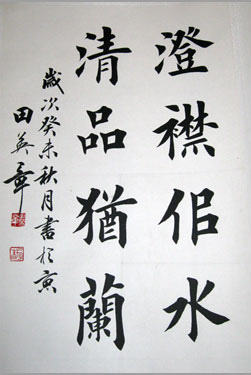 澄襟佀水
清品猶蘭
歲次癸未秋月書於京
田英章